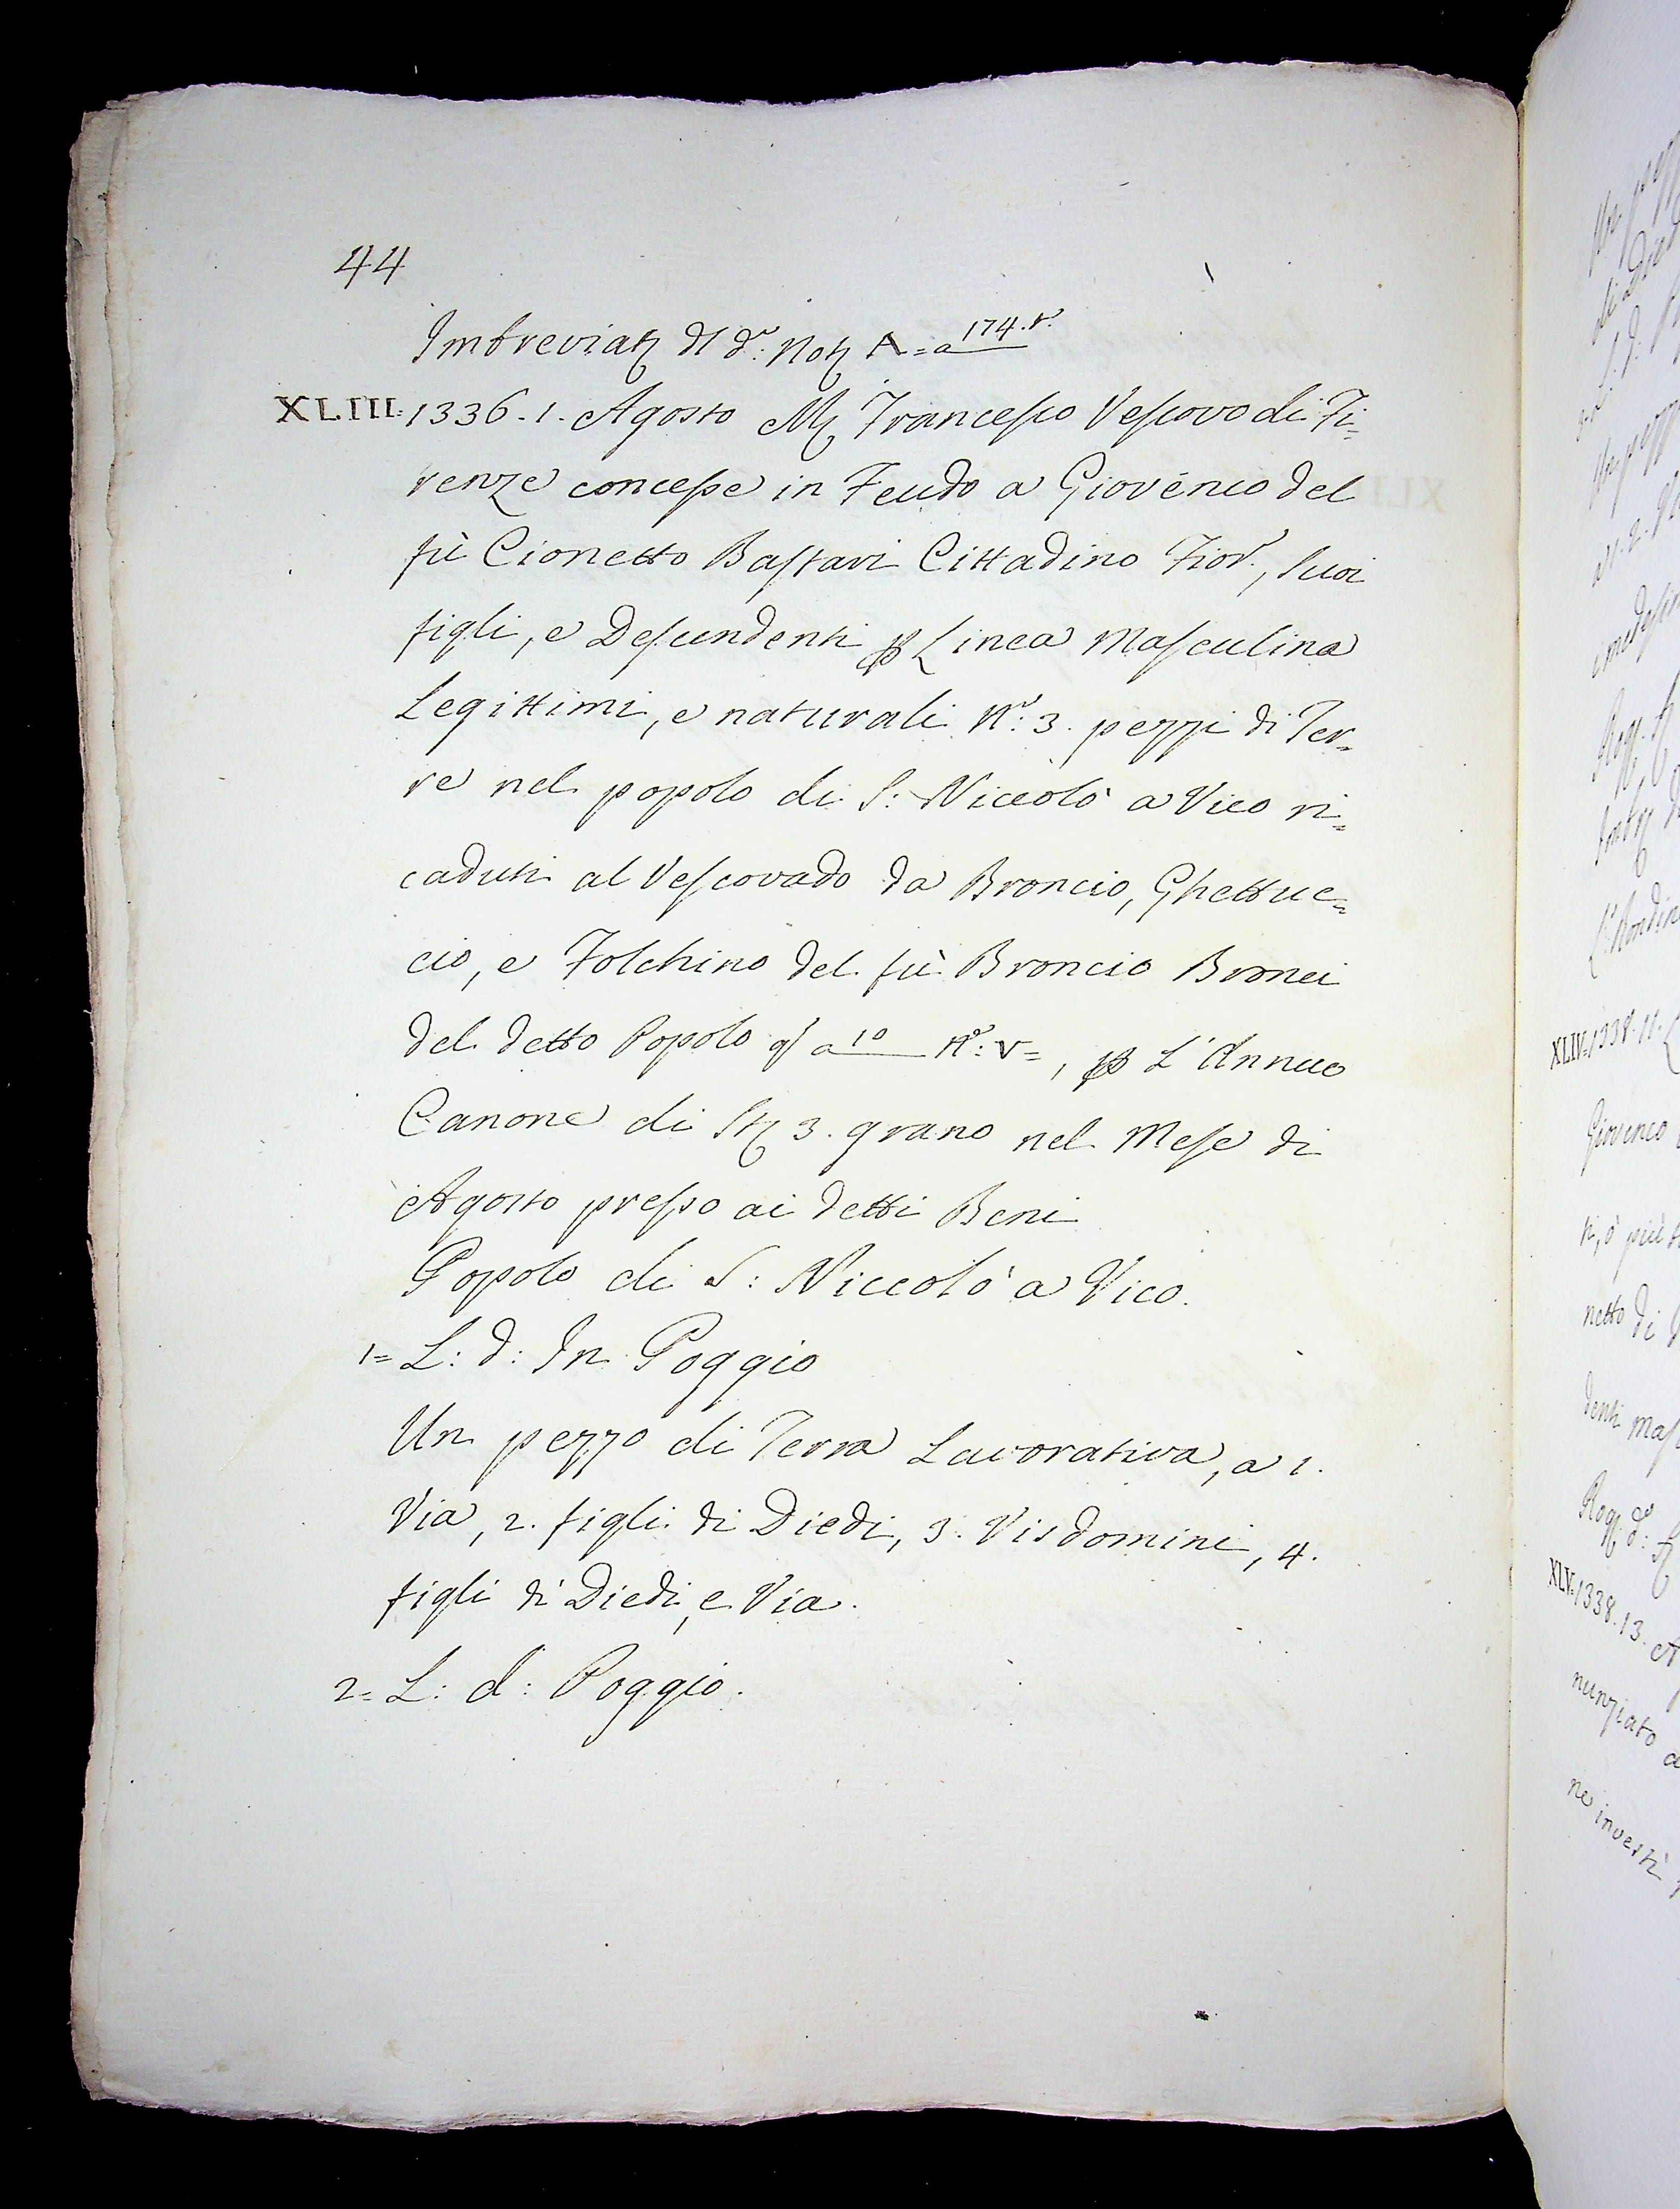 44
Imbreviatj dl do: Notj A = a 174. r.
XLIII = 1336. 1. Agosto Mj Francesco Vescovo di Fi=
renze concesse in Feudo a Giovenco del
fù Cionetto Bastari Cittadino Fior:, suoi
figli, e Descendenti p Linea Masculina
Legittimi, e naturali No: 3. pezzi di Ter=
re nel popolo di S: Niccolò a Vico ri=
caduti al Vescovado da Broncio, Ghettuc=
cio, e Folchino del fù Broncio Bronci
del detto Popolo a 10 No: V=, p L'Annuo
Canone di Stj 3. grano nel Mese di
Agosto presso ai detti Beni
Popolo di S: Niccolò a Vico.
1= L: d: In Poggio
Un pezzo di Terra Lavorativa, a 1.
Via, 2. figli di Diedi, 3. Visdomini, 4.
figli di Diedi, e Via.
2= L: d: Poggio.
XLIV = 1338. 11.
Giovenco
ti, ò più
netto di
denti mas
XLV = 1338. 13.
nunziato
ne investì